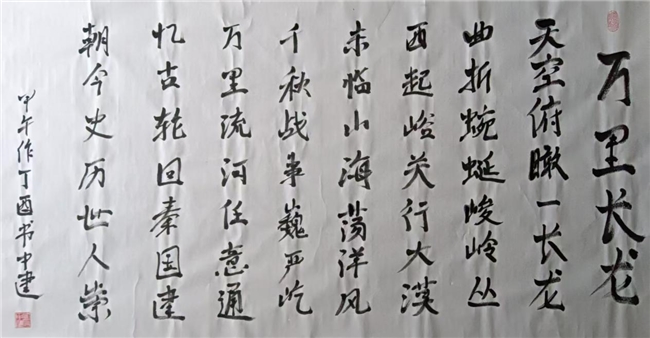 万里长龙
天空俯瞰一长龙
曲折蜿蜒峻岭丛
西起峻关行大漠
东临山海荡洋风
千秋战事巍严屹
万里流河任意通
忆古轮回秦国建
朝今史历世人崇
甲午作丁酉书中建